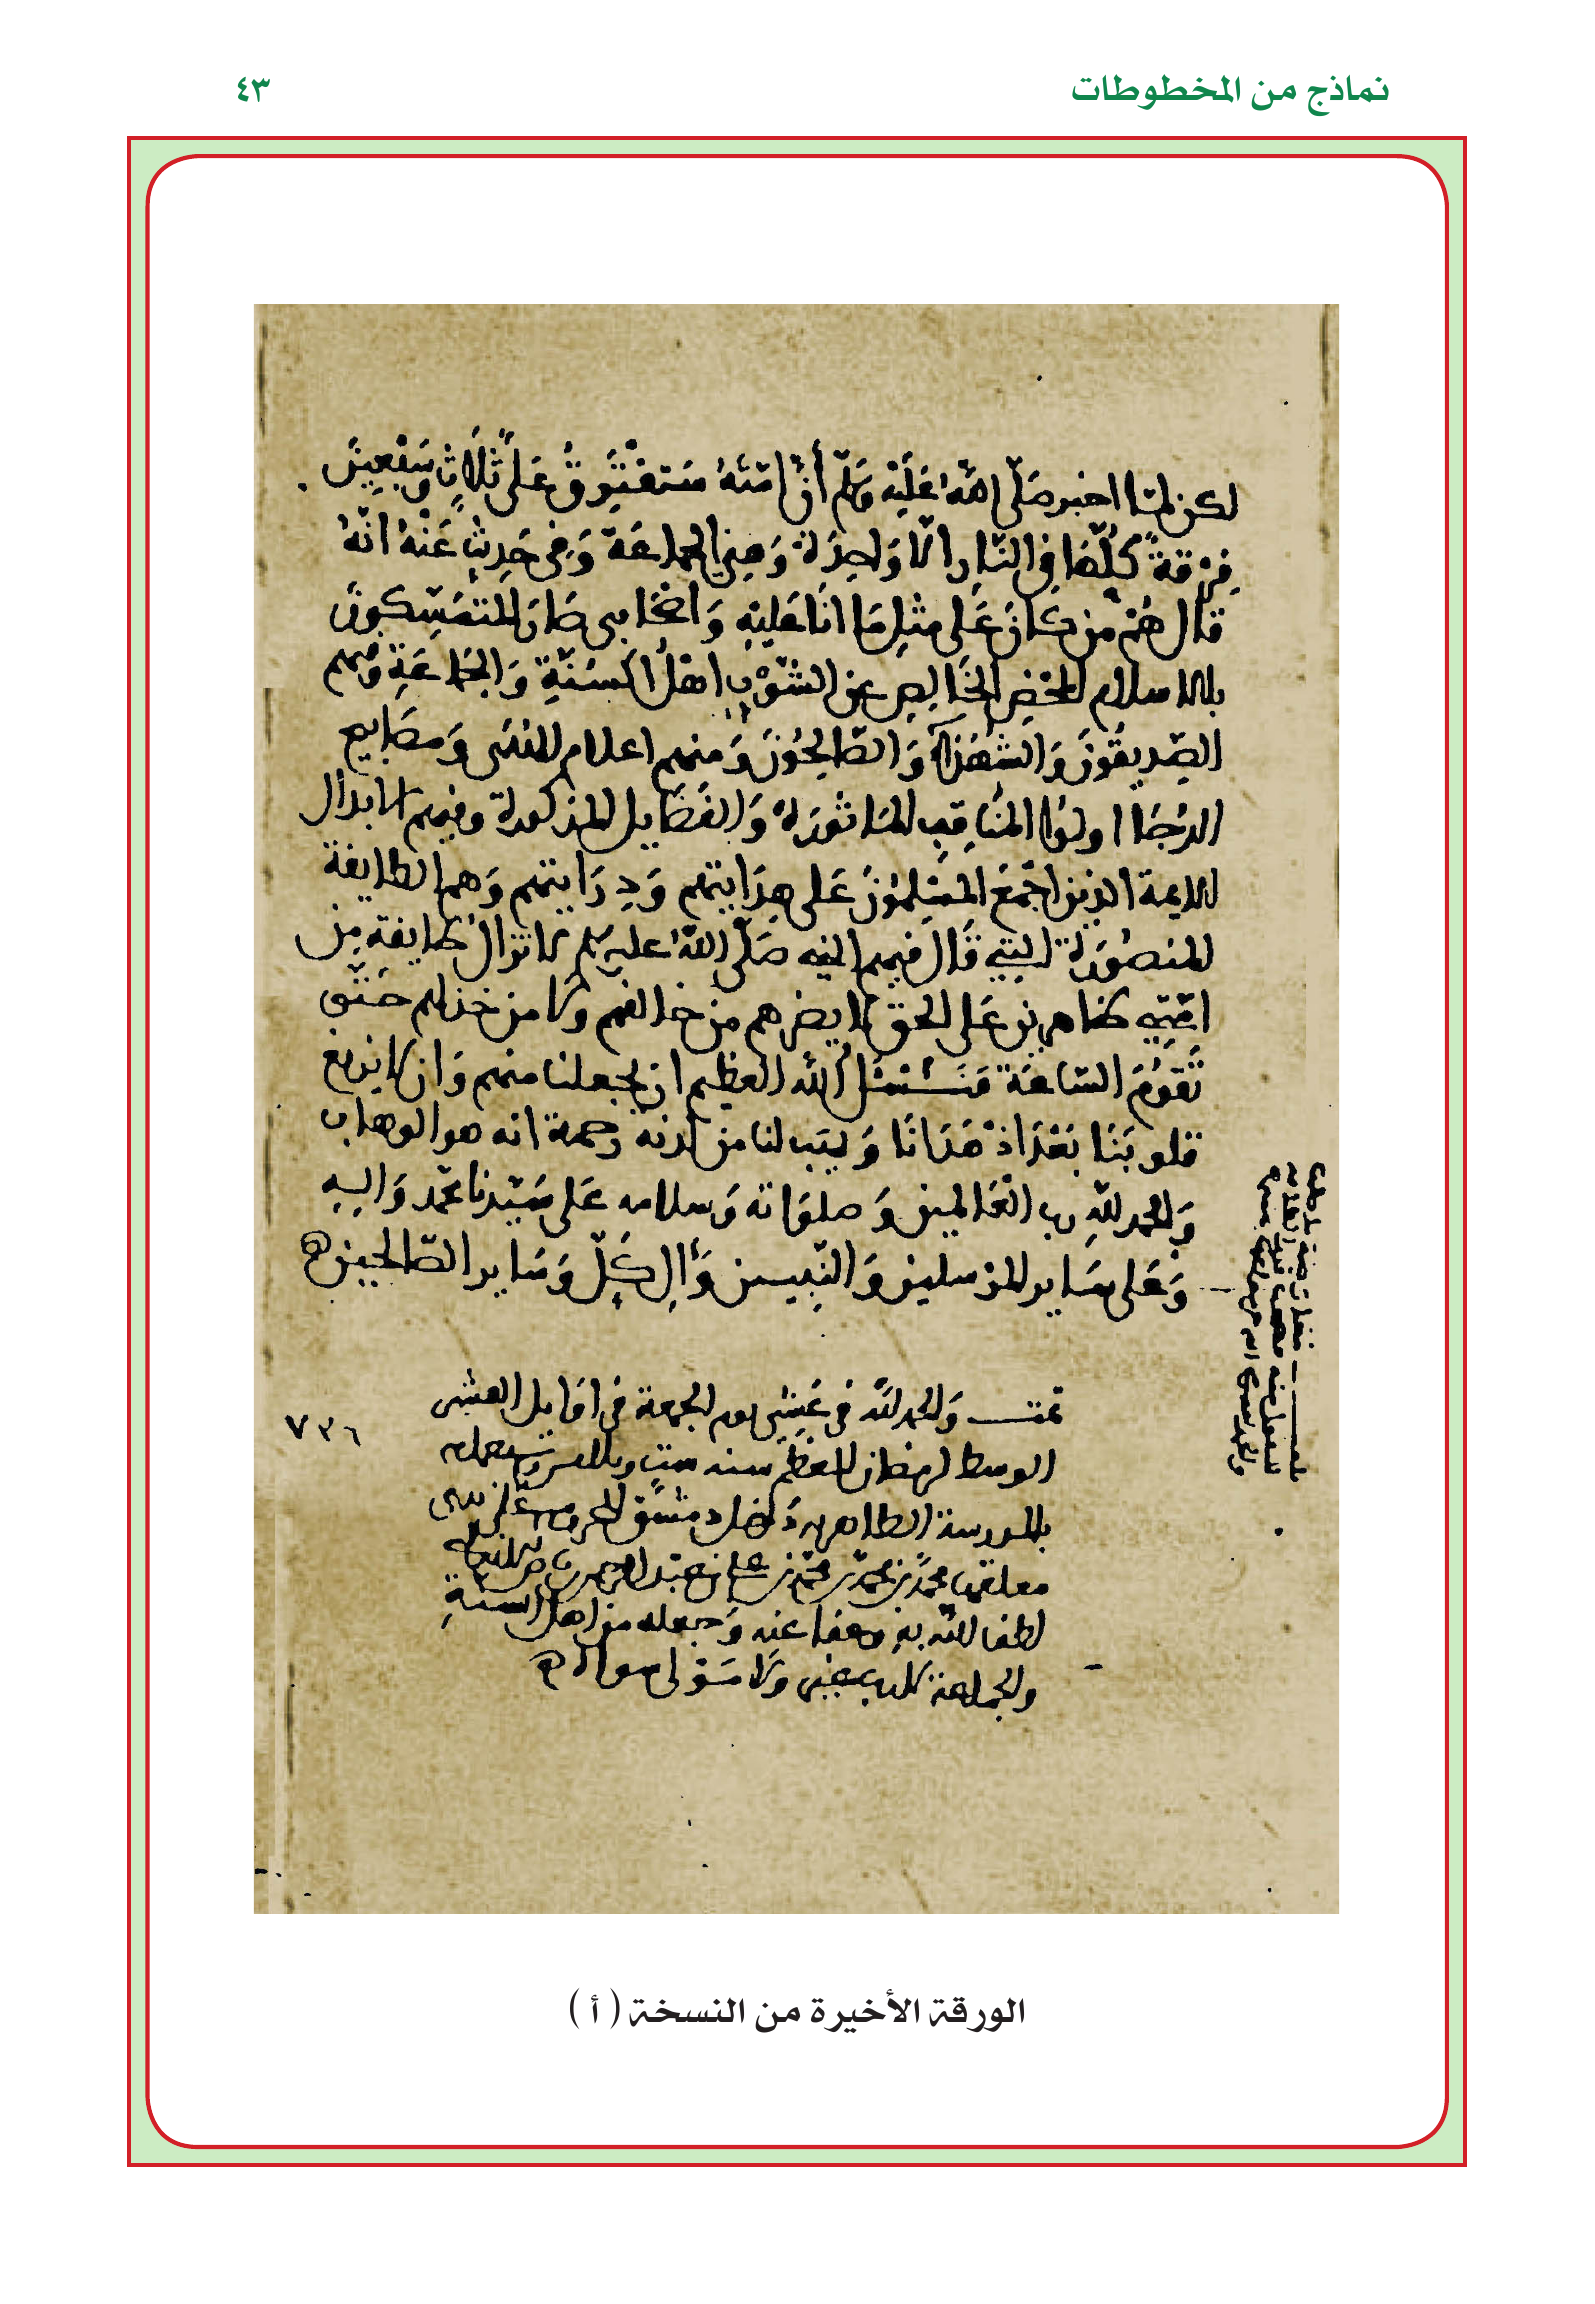 نماذج من المخطوطات
٤٣
لكن لما اخبر صَلّى اللهُ عَلَيْه وَسَلّم أنَّ امّتَهُ سَتفْتَرِقُ عَلى ثَلَاثٍ وَسَبْعِينَ
فِرْقةً كُلّهَا في النّارِ الّا وَاحِدَة وَهي الجماعَة وَفي حَديثٍ عَنْهُ انّهُ
قال هُمْ من كانَ عَلى مثلِ مَا انَا عَليْهِ وَاصْحَابي صَارَ المتمَسّكونَ
بالاسلام المحْضِ الخَالِصِ عن الشّوْبِ اهْلُ السُنّةِ وَالجَمَاعَةِ وَفيهم
الصِّديقُونَ وَالشُهَدَآءُ وَالصّالِحُونَ وَمنهم اعلام الهُدَى وَمصَابيح
الدُجَا اولوُا المنَاقِبِ المَاثورَة وَالفَضَايل المذكورة وفيهم الابدال
الايمة الذين اجْمَعَ المسْلمُونَ عَلى هِدَايتهم وَدِرَايتهم وَهم الطايفة
المنصُورَة التِي قَال فيهم النبي صَلّى اللهُ عليه وسلم لا تزالُ طايفة مِن
امّتِي ظاهرين عَلى الحق لا يضرهم من خالفهم ولا من خذلهم حَتّى
تَقومُ السّاعَة فنَسْئلُ الله العظيم ان يجعلنا منهم وَان لا يزيغ
قلوبَنَا بَعْدَ اذْ هَدَانَا وَيهَب لنا من لدنه رَحمة انه هو الوهاب
وَالحمد للّهِ رب العَالمين وَصلوَاته وَسلامه عَلى سَيّدنا محمّد وَاله
وَعَلى سَاير المرْسلين وَالنّبِيين وَآلِ كلّ وَسَاير الصّالحين
تمت وَالحمد للّه في عَشِي يوم الجمعة في اوَايل العشر
الوسط لرمضان المعظّم سنه ست وثلاثين وسبعمايه
بالمدرسة الظاهريه دَاخل دمشق المحروسة على يدي
معلقها محمّد بن محمّد بن محمّد بن
لطف اللّه بهِ وعفا عنه وَجعله من اهل السنةِ
والجماعة
٧٣٦
الورقة الأخيرة من النسخة ( أ )